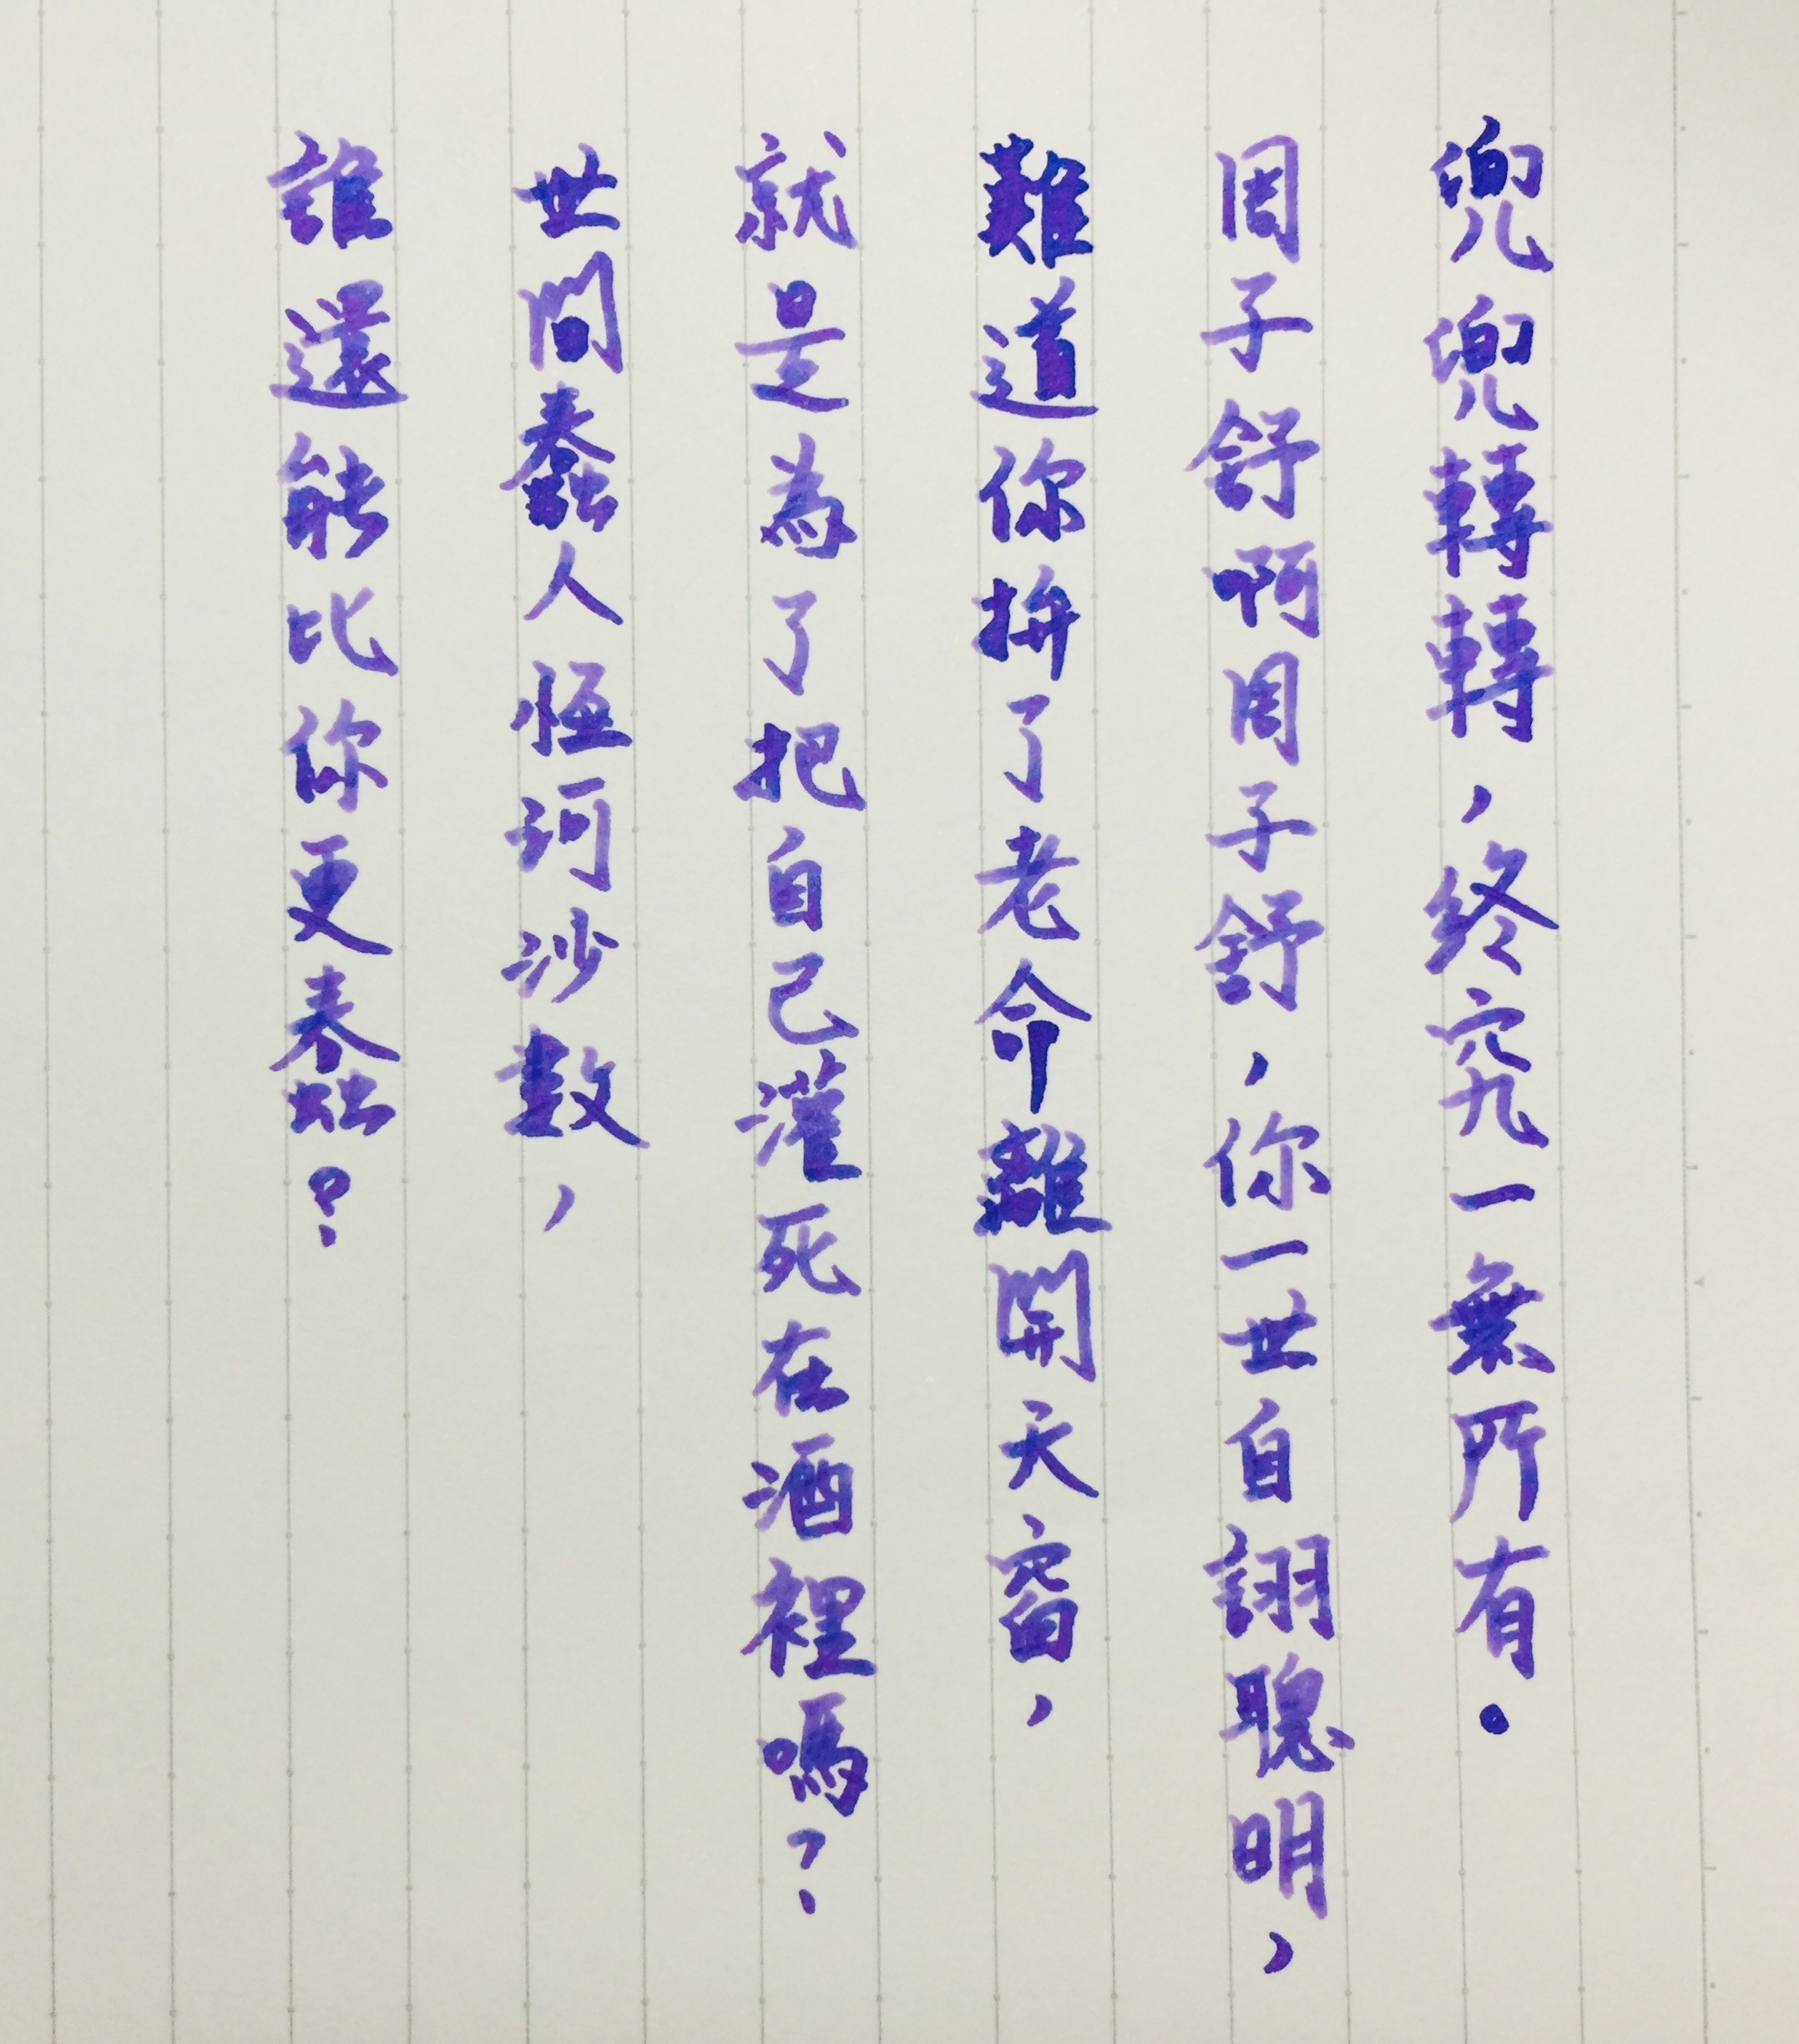 兜兜轉轉，終究一無所有。
周子舒啊周子舒，你一世自詡聰明，
難道你拚了老命離開天窗，
就是為了把自己灌死在酒裡嗎？
世間蠢人恆河沙數，
誰還能比你更蠢？